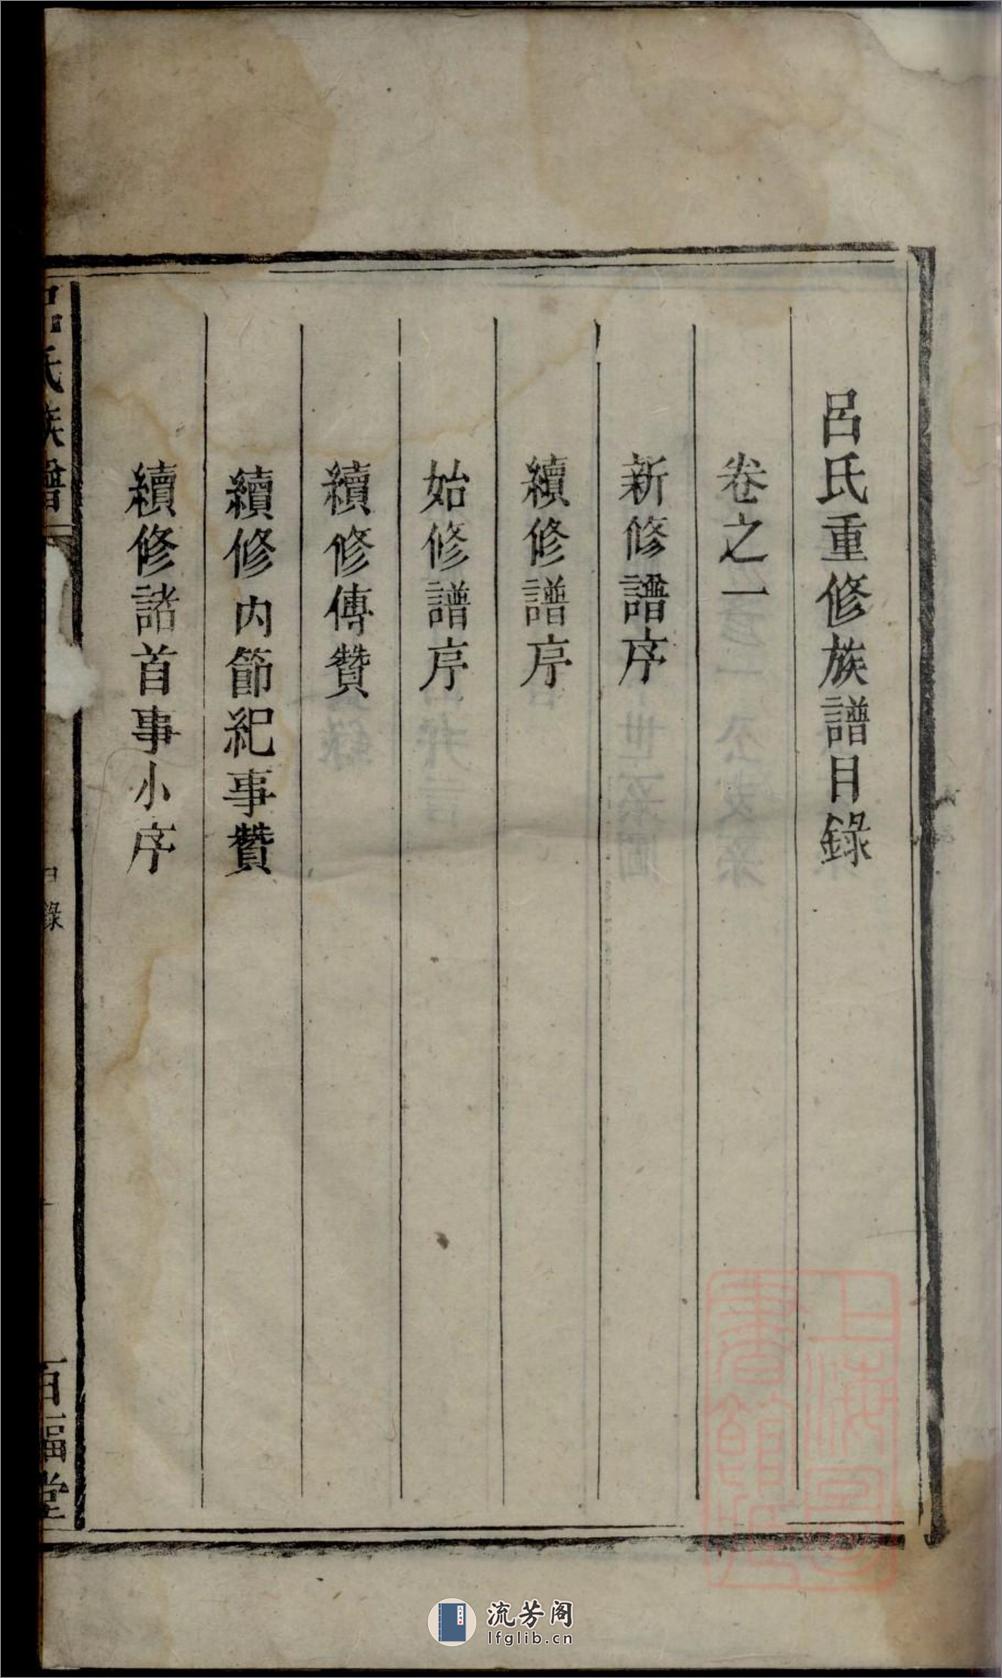 呂氏重修族譜目錄
卷之一
新修譜序
續修譜序
始修譜序
續修傳贊
續修内節紀事贊
續修諸首事小序
呂氏族譜
目錄
百福堂
上海圖
書館藏
流芳阁
lfglib.cn